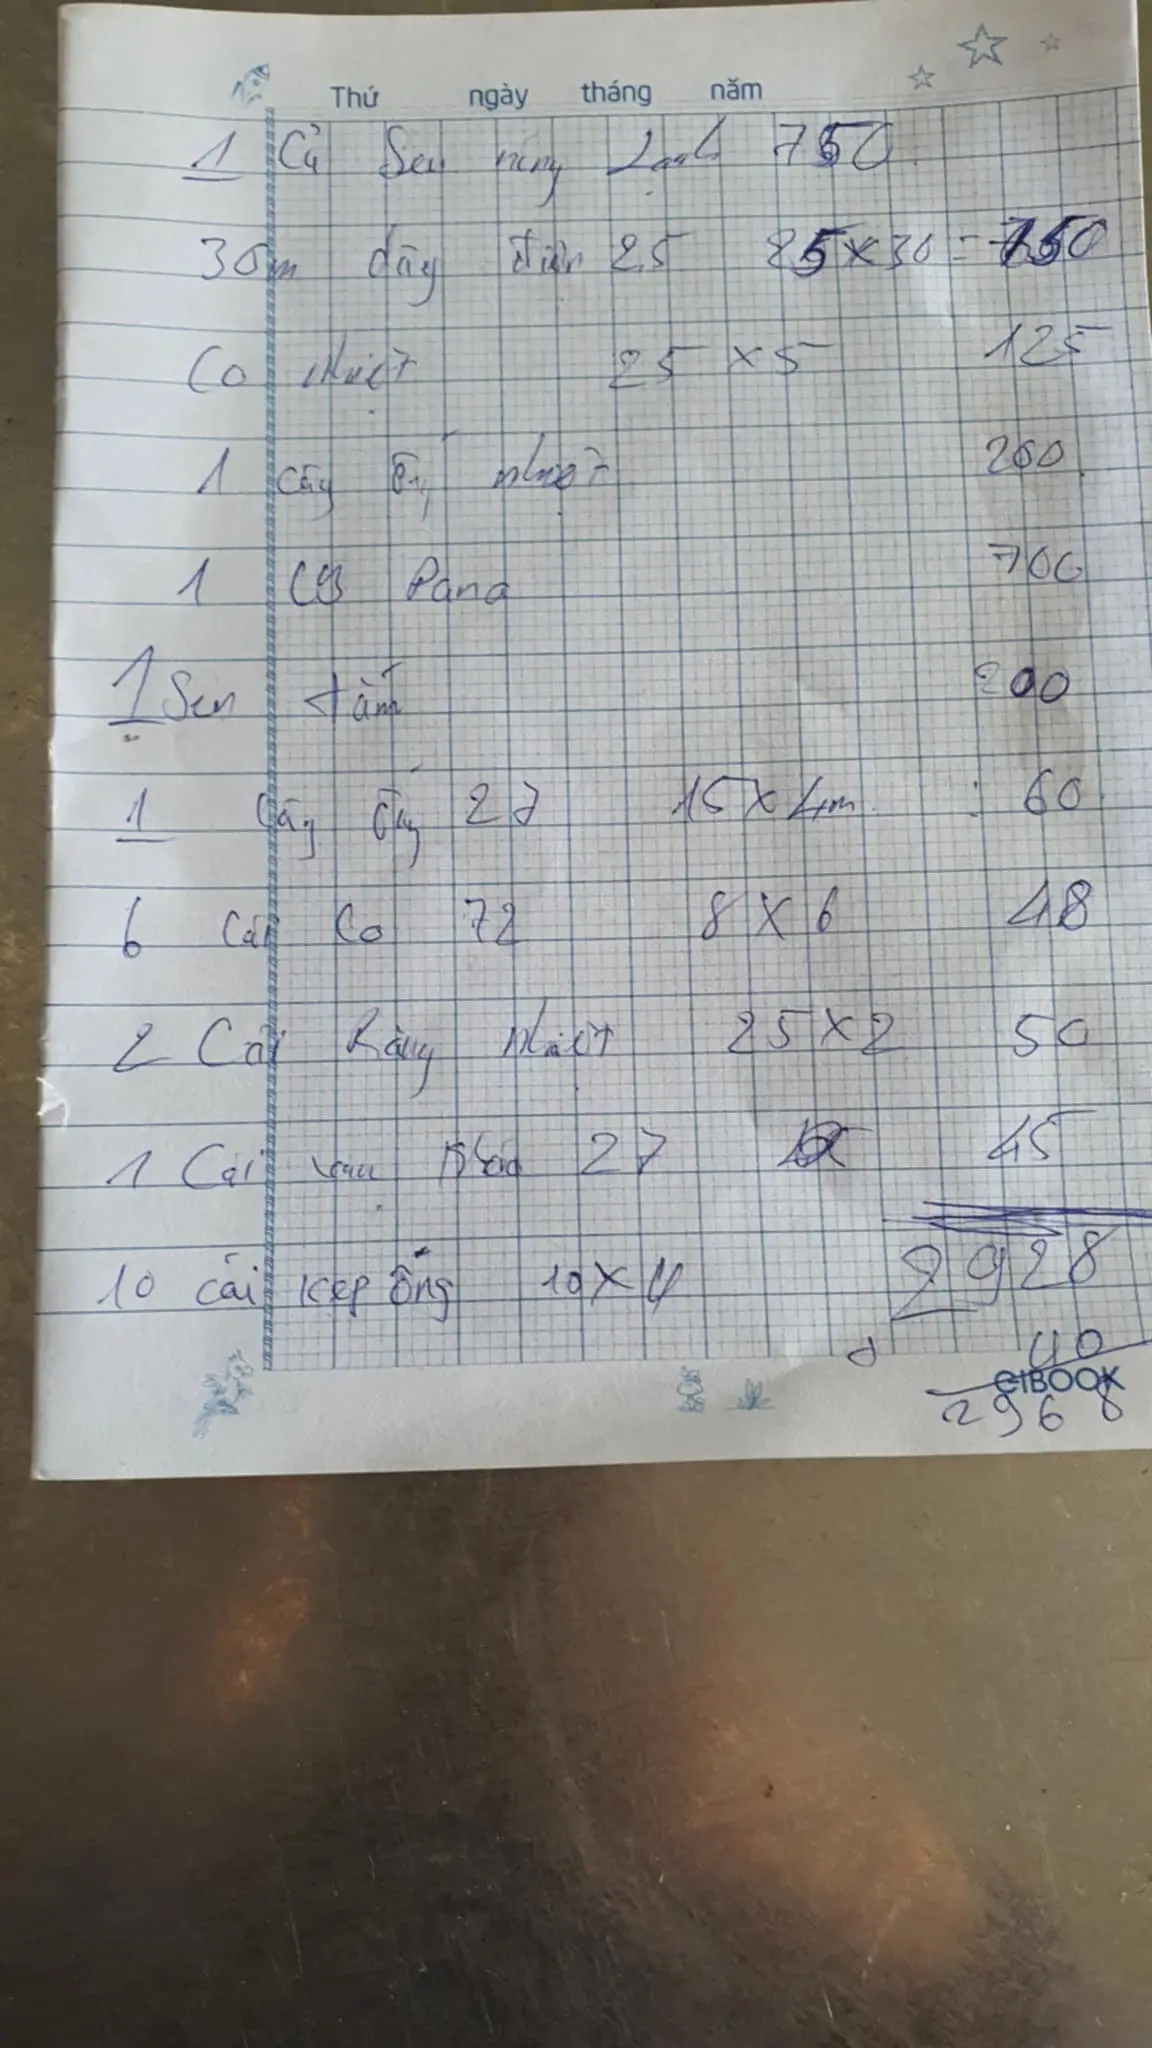 Thứ ngày tháng năm
1 Củ Sen nóng Lạnh 750
30m dây điện 25 25 x 30 = 750
Co nhiệt 25 x 5 125
1 cây ống nhiệt 200
1 CB Pana 700
1 Sen tắm 200
1 Cây ống 27 15 x 4m : 60
6 Cái Co 72 8 x 6 48
2 Cái Răng nhiệt 25 x 2 50
1 Cái khóa 27 45
2928
10 cái kẹp ống 10 x 4
40
eIBOOK
2968